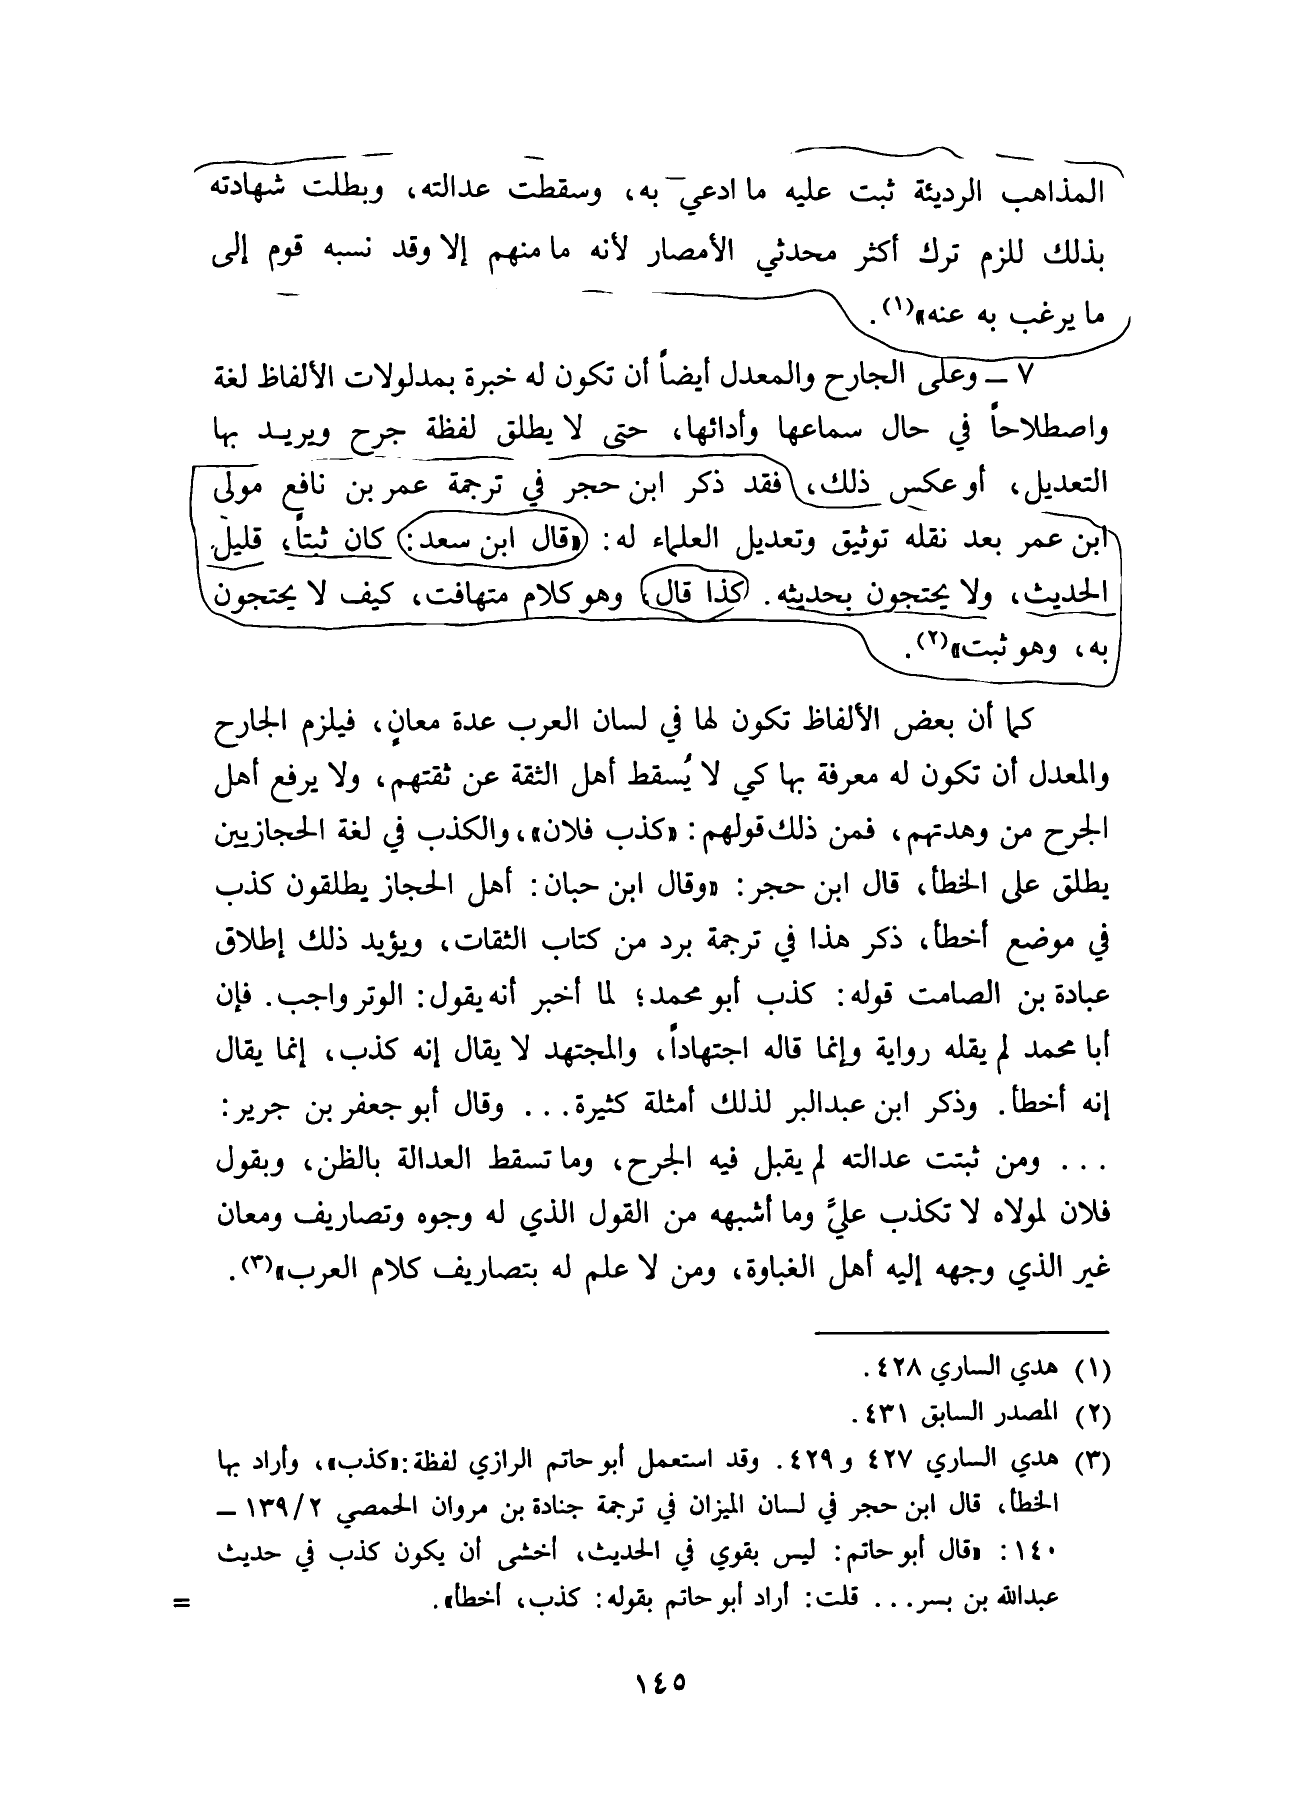 المذاهب الرديئة ثبت عليه ما ادعي به، وسقطت عدالته، وبطلت شهادته
بذلك للزم ترك أكثر محدثي الأمصار لأنه ما منهم إلا وقد نسبه قوم إلى
ما يرغب به عنه»(١).
٧ ـ وعلى الجارح والمعدل أيضاً أن تكون له خبرة بمدلولات الألفاظ لغة
واصطلاحاً في حال سماعها وأدائها، حتى لا يطلق لفظة جرح ويريد بها
التعديل، أو عكس ذلك، فقد ذكر ابن حجر في ترجمة عمر بن نافع مولى
ابن عمر بعد نقله توثيق وتعديل العلماء له: «قال ابن سعد: كان ثبتاً، قليل
الحديث، ولا يحتجون بحديثه. كذا قال، وهو كلام متهافت، كيف لا يحتجون
به، وهو ثبت»(٢).
كما أن بعض الألفاظ تكون لها في لسان العرب عدة معانٍ، فيلزم الجارح
والمعدل أن تكون له معرفة بها كي لا يُسقط أهل الثقة عن ثقتهم، ولا يرفع أهل
الجرح من وهدتهم، فمن ذلك قولهم: «كذب فلان»، والكذب في لغة الحجازيين
يطلق على الخطأ، قال ابن حجر: «وقال ابن حبان: أهل الحجاز يطلقون كذب
في موضع أخطأ، ذكر هذا في ترجمة برد من كتاب الثقات، ويؤيد ذلك إطلاق
عبادة بن الصامت قوله: كذب أبو محمد؛ لما أخبر أنه يقول: الوتر واجب. فإن
أبا محمد لم يقله رواية وإنما قاله اجتهاداً، والمجتهد لا يقال إنه كذب، إنما يقال
إنه أخطأ. وذكر ابن عبدالبر لذلك أمثلة كثيرة... وقال أبو جعفر بن جرير:
... ومن ثبتت عدالته لم يقبل فيه الجرح، وما تسقط العدالة بالظن، وبقول
فلان لمولاه لا تكذب عليَّ وما أشبهه من القول الذي له وجوه وتصاريف ومعان
غير الذي وجهه إليه أهل الغباوة، ومن لا علم له بتصاريف كلام العرب»(٣).
(١) هدي الساري ٤٢٨.
(٢) المصدر السابق ٤٣١.
(٣) هدي الساري ٤٢٧ و ٤٢٩. وقد استعمل أبو حاتم الرازي لفظة: «كذب»، وأراد بها
الخطأ، قال ابن حجر في لسان الميزان في ترجمة جنادة بن مروان الحمصي ١٣٩/٢ ـ
١٤٠: «قال أبو حاتم: ليس بقوي في الحديث، أخشى أن يكون كذب في حديث
عبدالله بن بسر... قلت: أراد أبو حاتم بقوله: كذب، أخطأ».
=
١٤٥